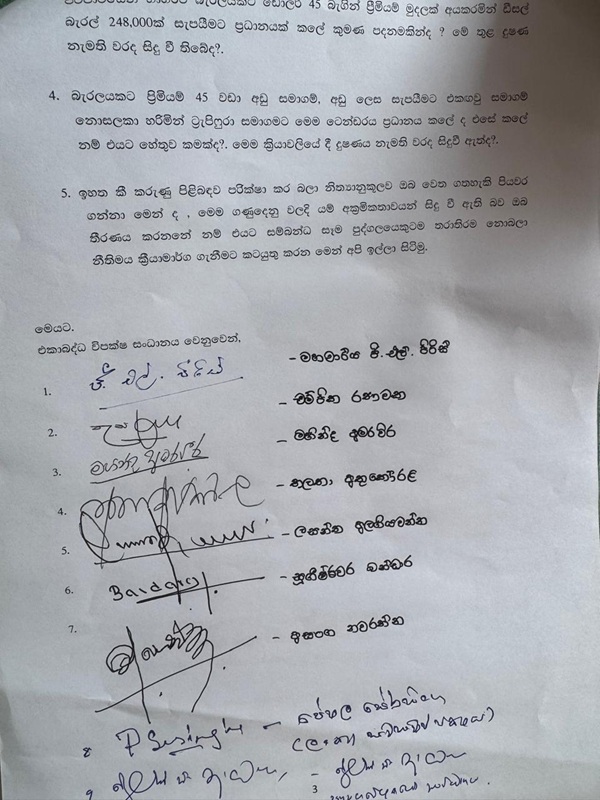 බැරල් 248,000ක් සැපයීමට ප්‍රධානයක් කලේ කුමණ පදනමකින්ද ? මේ තුළ දූෂණ
නැමති වරද සිදු වී තිබේද?.
4. බැරලයකට ප්‍රිමියම් 45 වඩා අඩු සමාගම්, අඩු ලෙස සැපයීමට එකඟවු සමාගම්
නොසලකා හරිමින් ට්‍රැපිෆුරා සමාගමට මෙම ටෙන්ඩරය ප්‍රධානය කලේ ද එසේ කලේ
නම් එයට හේතුව කමක්ද?. මෙම ක්‍රියාවලියේ දී දූෂණය නැමති වරද සිදුවී ඇත්ද?.
5. ඉහත කී කරුණු පිළිබඳව පරික්ෂා කර බලා නිත්‍යානුකූලව ඔබ වෙත ගතහැකි පියවර
ගන්නා මෙන් ද , මෙම ගණුදෙනු වලදී යම් අක්‍රමිකතාවයන් සිදු වී ඇති බව ඔබ
තීරණය කරනනේ නම් එයට සම්බන්ධ සෑම පුද්ගලයෙකුටම තරාතිරම නොබලා
නීතිමය ක්‍රියාමාර්ග ගැනීමට කටයුතු කරන මෙන් අපි ඉල්ලා සිටිමු.
මෙයට.
එකාබද්ධ විපක්ෂ සංධානය වෙනුවෙන්,
1. ජී. එල්. පීරිස් – මහාචාර්ය ජී.එල්. පීරිස්
2. – චම්පික රණවක
3. මහින්ද අමරවීර – මහින්ද අමරවීර
4. – තලතා අතුකෝරළ
5. – ලසන්ත අලගියවන්න
6. – සුගීෂ්වර බණ්ඩාර
7. – අසංග නවරත්න
8
9
3